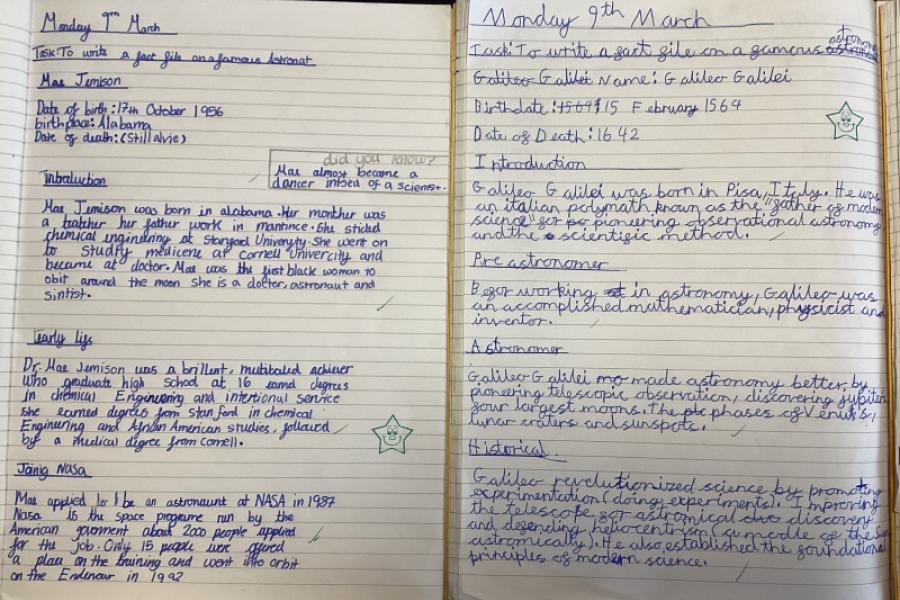 Monday 9th March
Task: To write a fact file on a famous Astronat
Mae Jemison
Date of birth: 17th October 1956
birthplace: Alabama
Date of death: (Still alvie)
did you know?
Mae almost became a
dancer intsed of a scienist.
Intboluction
Mae Jemison was born in alabama. Her monther was
a teatcher her father work in mantince. She stided
chemical enginering at Stangard Univeryty. She went on
to studfy medicene at cornell Univercity and
became at doctor. Mae was the first black woman to
obit around the moon she is a doctor, astronaut and
sintist.
Early lifs
Dr. Mae Jemison was a brillent, multitaled achiever
Who graduate high school at 16 eamd degres
in chemical Engineering and intertional service
she earned degrees from Stanford in chemical
Engineering and African American studies, followed
by a medical degree from Cornell.
Joinig Nasa
Mae applied to be an astronaunt at NASA in 1987
Nasa is the space programe run by the
American goverment about 2000 people applied
for the job. Only 15 people were offered
a place on the training and went into orbit
on the Endenour in 1992
Monday 9th March
Task: To write a fact file on a famous astronomer
Galileo Galilei Name: Galileo Galilei
Birthdate: 15641 15 February 1564
Date of Death: 1642
Introduction
Galileo Galilei was born in Pisa, Italy. He was
an italian polymath known as the "father of modern
science" for po pioneering observational astronomy
and the scientific method.
Pre astronomer
Befor working at in astronomy, Galileo was
an accomplished mathematician, physicist and
inventor.
Astronomer
Galileo Galilei mo made astronomy better by
pioneering telescopic observation, discovering jupiters
four largest moons. The pc phases of Venus's,
lunar craters and sunspots.
Historical
Galileo revolutionized science by promoting
experimentation (doing experiments). Improving
the telescope for astromical dis discovery
and defending heliocentrism (a modle of the Sun
astromically). He also established the foundational
principles of modern science.